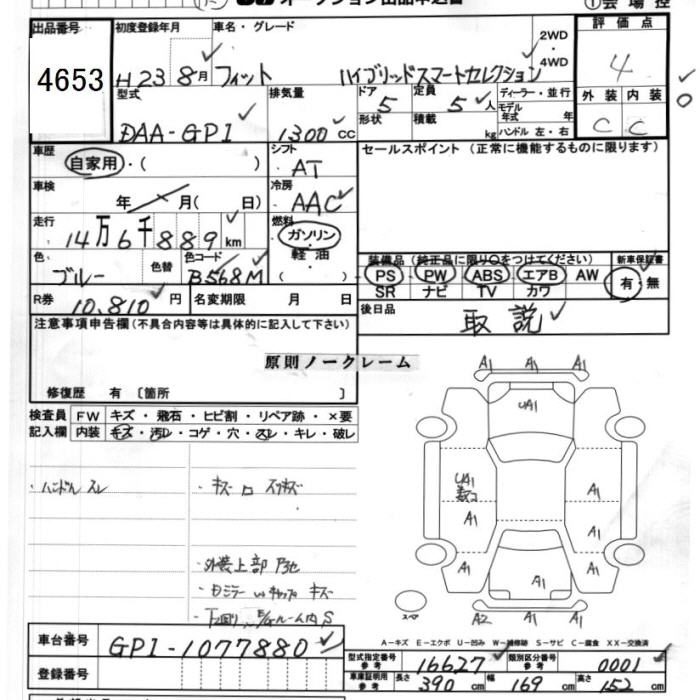 出品番号
4653
初度登録年月
H23 8月
車名・グレード
フィット ハイブリッドスマートセレクション
2WD
・
4WD
評価点
4
外装 内装
C C
型式
DAA-GP1
排気量
1300 cc
ドア
5
形状
定員
5人
積載
kg
ディーラー・並行
モデル
年式 年
ハンドル 左・右
車歴
自家用・( )
シフト
AT
セールスポイント (正常に機能するものに限ります)
車検
年 月( 日)
冷房
AAC
走行
14万6千889 km
燃料
ガソリン
軽油
( )
色
ブルー
色替
色コード
B568M
装備品 (純正品に限り○をつけてください)
PS PW ABS エアB AW
SR ナビ TV カワ
新車保証書
有・無
R券
10,810 円
名変期限 月 日
後日品
取説
注意事項申告欄(不具合内容等は具体的に記入して下さい)
原則ノークレーム
修復歴 有 〔箇所 〕
検査員
記入欄
FW キズ・飛石・ヒビ割・リペア跡・×要
内装 キズ・汚レ・コゲ・穴・スレ・キレ・破レ
・ハンドル スレ
・外装上部
・下回り
A1 A1 A1
UA1
UA1
A1 A1
A1
A1 A1
A1
スペア
A2 A1 A1
A-キズ E-エクボ U-凹み W-補修跡 S-サビ C-腐食 XX-交換済
車台番号
GP1-1077880
登録番号
型式指定番号
参考
16627
類別区分番号
参考
0001
車庫証明用
参考
長さ 390 cm 幅 169 cm 高さ 152 cm